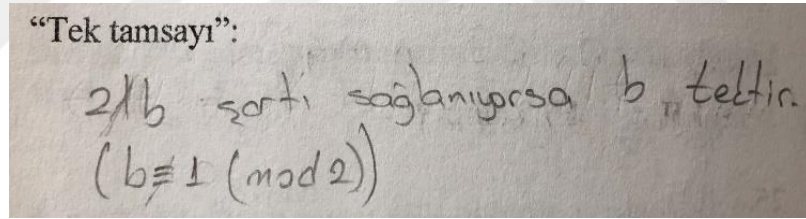 “Tek tamsayı”:
2∤b şartı sağlanıyorsa b tektir.
(b≢1 (mod 2))